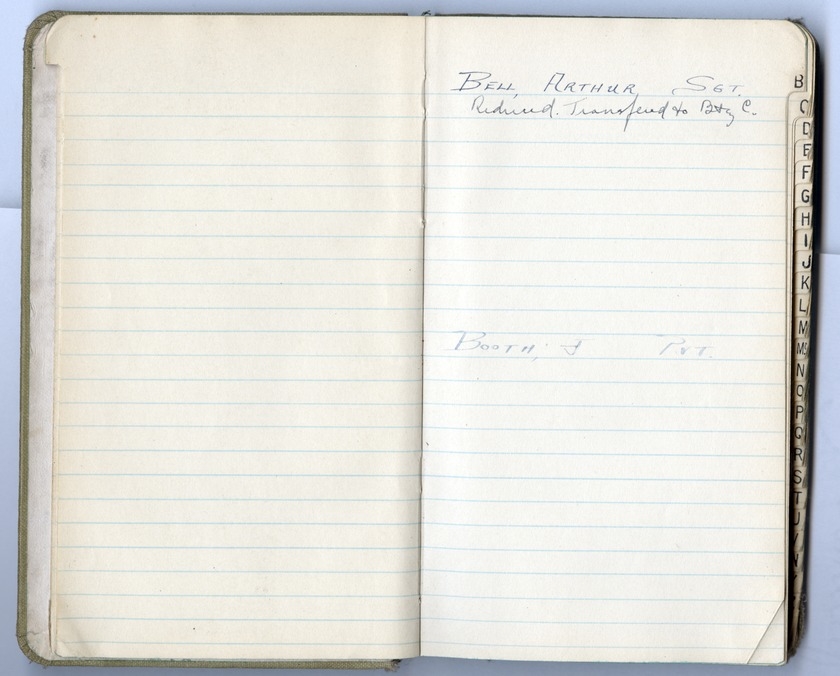 BELL, ARTHUR SGT.
Reduced. Transferred to Bty C.
BOOTH, J PVT.
B
C
D
E
F
G
H
I
J
K
L
M
Mc
N
O
P
Q
R
S
T
U
V
W